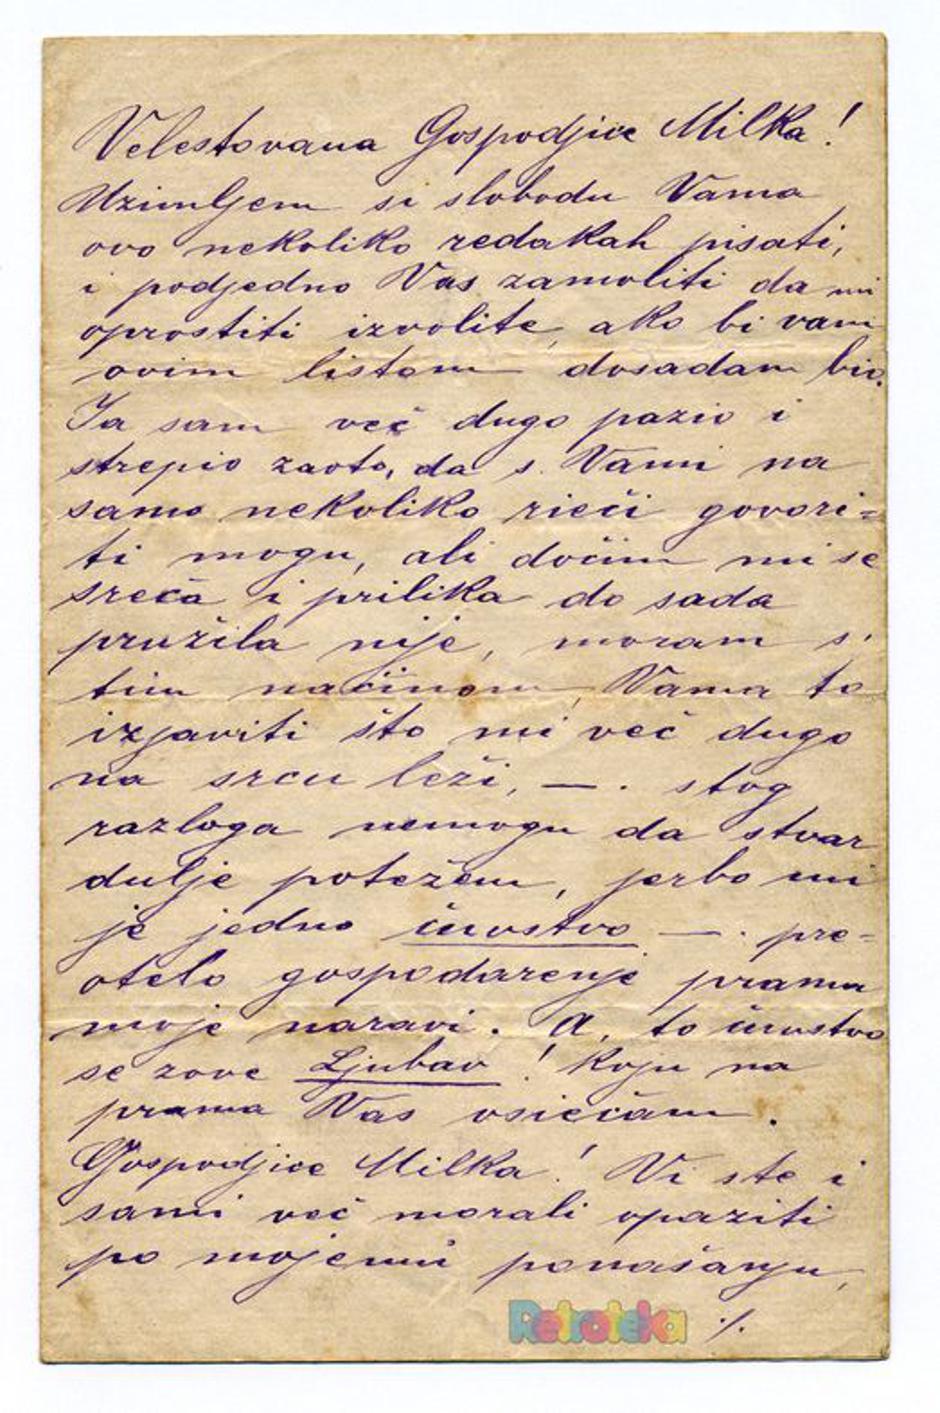 Velestovana Gospodjice Milka!
Uzimljem si slobodu Vama
ovo nekoliko redakah pisati,
i podjedno Vas zamoliti da mi
oprostiti izvolite, ako bi vam
ovim listom dosadam bio.
Ja sam već dugo pazio i
strepio zaoto, da s. Vami na
samo nekoliko rieči govori=
ti mogu, ali dočim mi se
sreća i prilika do sada
pružila nije, moram s'
tim načinom, Vama to
izjaviti što mi već dugo
na srcu leži, —. stog
razloga nemogu da stvar
dulje potežem, jerbo mi
je jedno ćuvstvo —. pre=
otelo gospodarenje prama
moje naravi. A, to ćuvstvo
se zove Ljubav! Koju na
prama Vas osiećam.
Gospodjice Milka! Vi ste i
sami već morali opaziti
po mojemu ponašanju,
Retroteka ./.